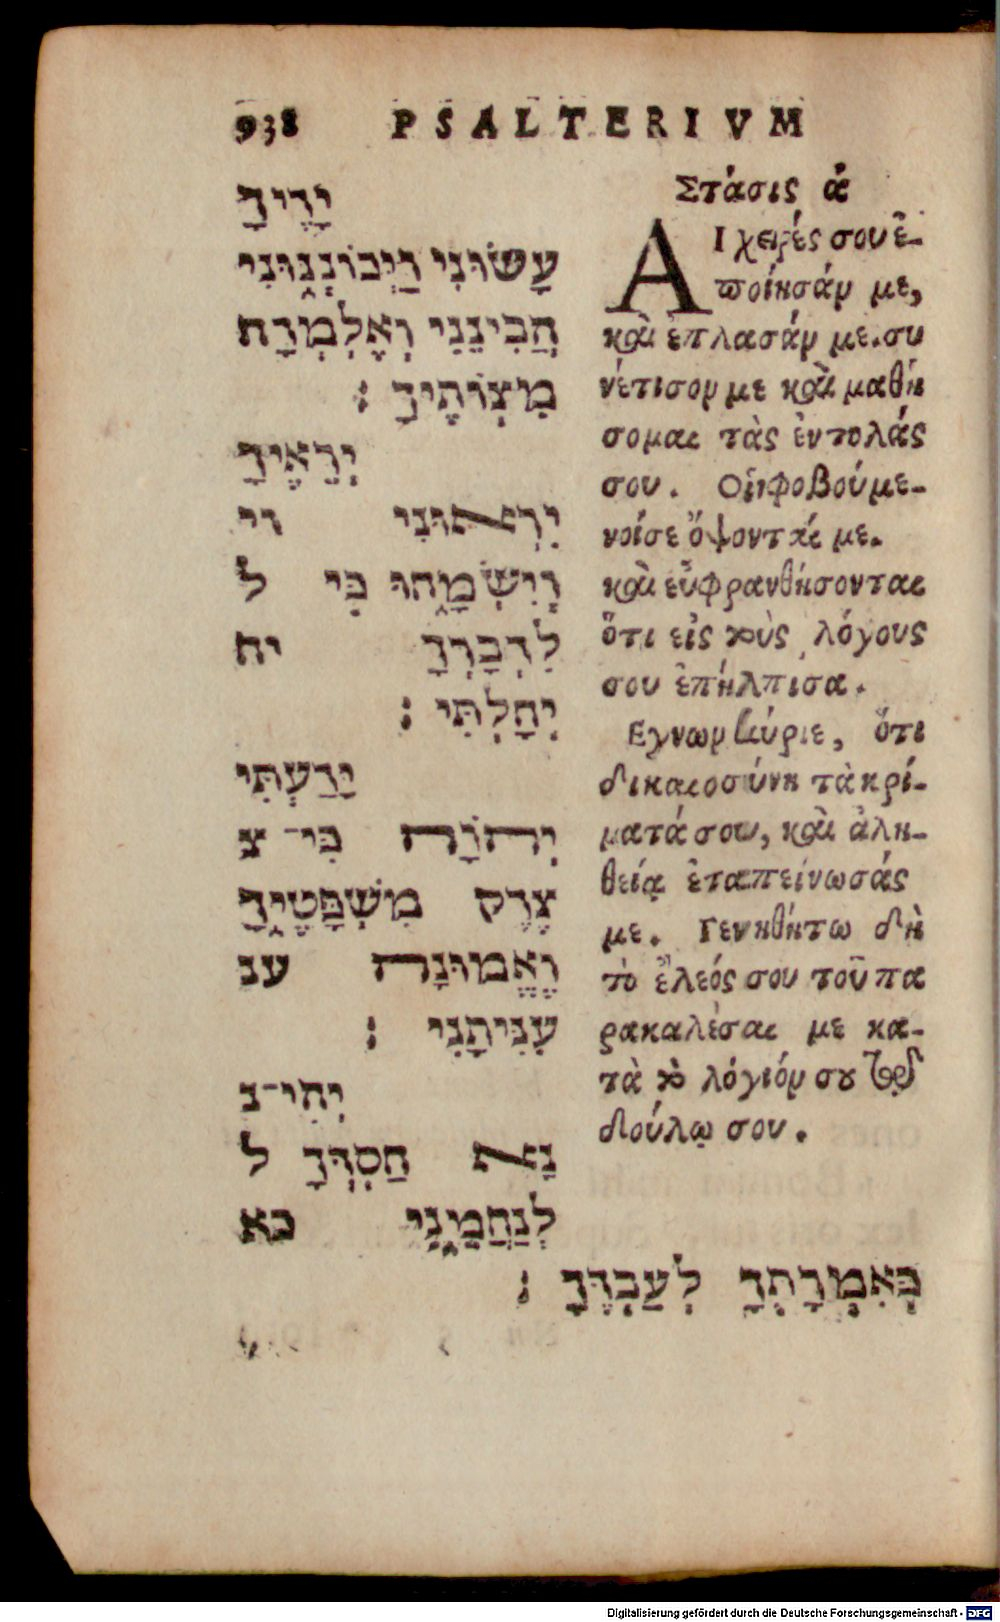 938 PSALTERIVM
יָדֶיךָ
עָשׂוּנִי וַיְכוֹנְנוּנִי
הֲבִינֵנִי וְאֶלְמְדָה
מִצְוֹתֶיךָ :
יְרֵאֶיךָ
יִרְאוּנִי וי
וְיִשְׂמָחוּ כִּי ל
לִדְבָרְךָ יח
יִחָלְתִּי :
יָדַעְתִּי
יְהוָֹה כִּי־צ
צֶדֶק מִשְׁפָּטֶיךָ
וֶאֱמוּנָה ענ
עִנִּיתָנִי :
יְהִי־נ
נָא חַסְדְּךָ ל
לְנַחֲמֵנִי כא
כְּאִמְרָתְךָ לְעַבְדֶּךָ :
Στάσις ά
ΑΙ χειρές σου ἐ-
ποίησάν με,
καὶ ἐπλασάν με. συ
νέτισον με καὶ μαθή
σομαι τὰς ἐντολάς
σου. Οἱ φοβούμε-
νοίσε ὄψονταί με.
καὶ εὐφρανθήσονται
ὅτι εἰς τοὺς λόγους
σου ἐπήλπισα.
Εγνων κύριε, ὅτι
δικαιοσύνη τὰ κρί-
ματά σου, καὶ ἀλη-
θείᾳ ἐταπείνωσάς
με. Γενηθήτω δὴ
τὸ ἔλεός σου τοῦ πα
ρακαλέσαι με κα-
τὰ τὸ λόγιόν σου τῷ
δούλῳ σου.
Digitalisierung gefördert durch die Deutsche Forschungsgemeinschaft - DFG